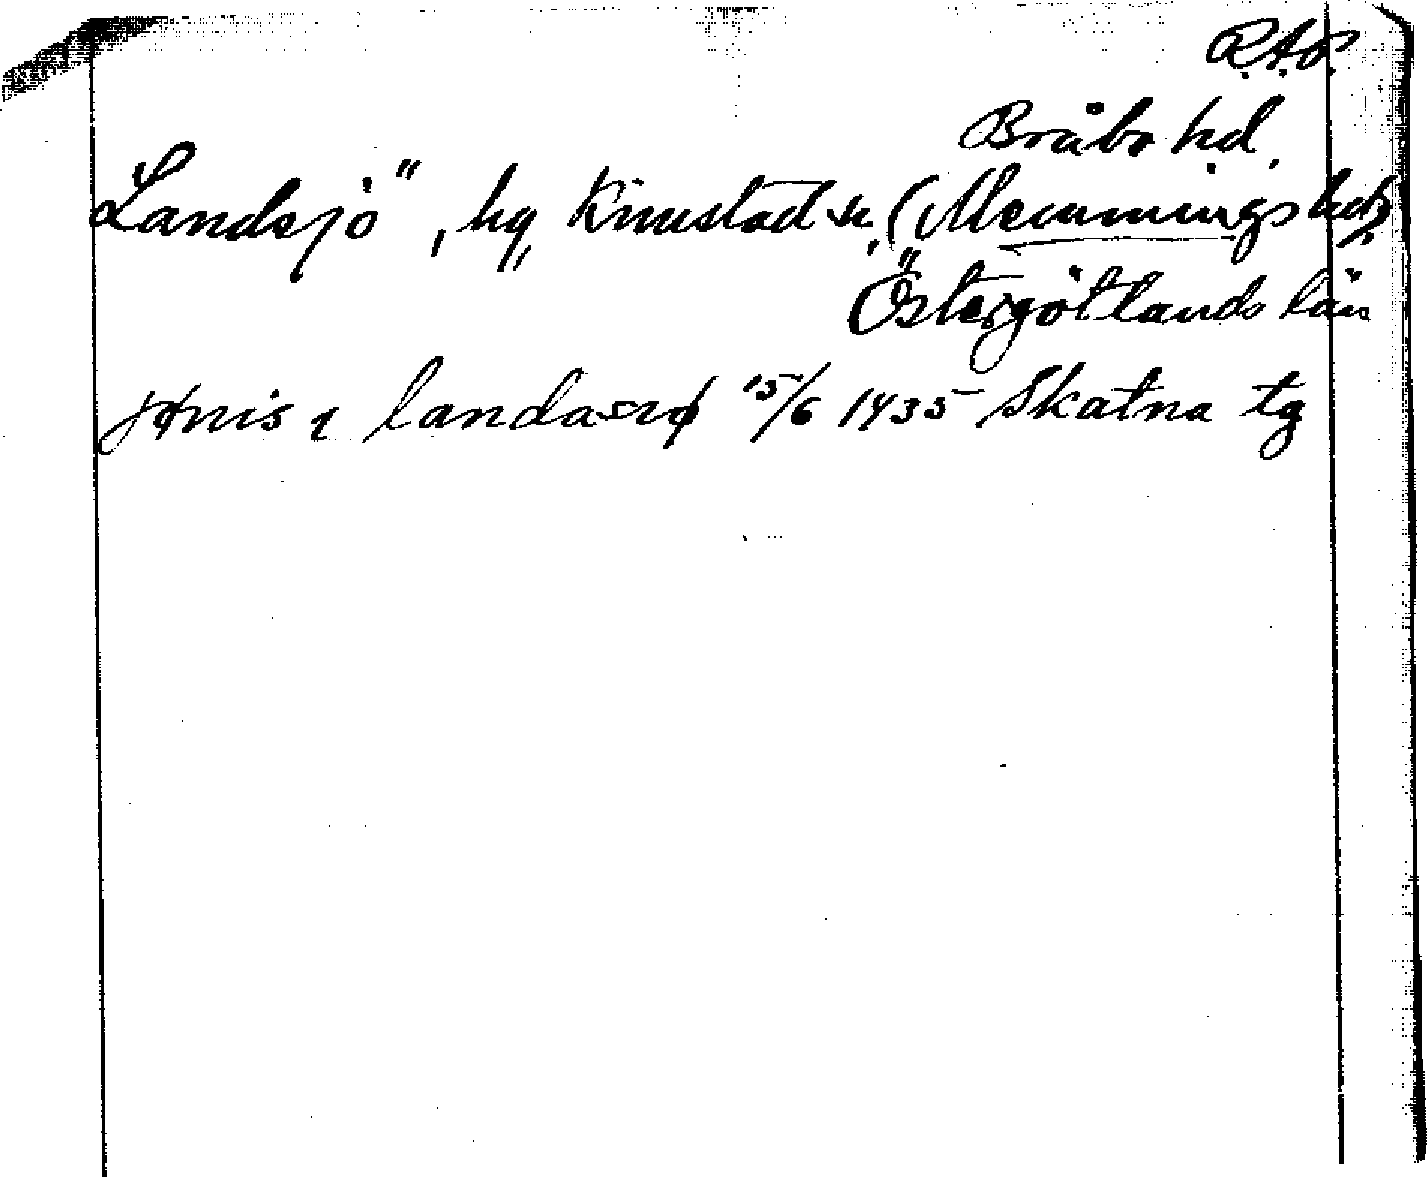 R.A.P.
Bråbo hd.
"Landsjö", hg, Kimstad sn, (Memmings hd),
Östergötlands län
jønis i landasiø 15/6 1435 Skatna tg